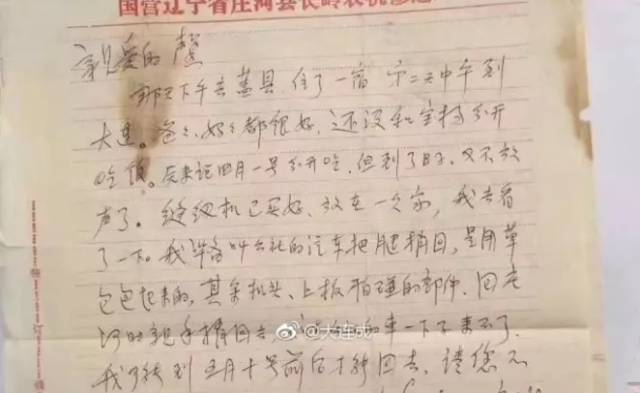 国营辽宁省庄河县长岭农机修造
亲爱的馨
那天下午去盖县,住了一宿 第二天中午到
大连。爸爸、妈妈都很好,还没和宝林分开
吃饭。原来说四月一号分开吃,但到了日子,又不放
声了。缝纫机已买好,放在一个家,我去看
了一下。我准备叫公社的汽车把腿捎回,是用草
包包起来的,其余机头、上板怕碰的部件,回庄
河时亲手捎回去, 车一下拿不了
我可能到五月十号前后才能回去,请您不
@大连成